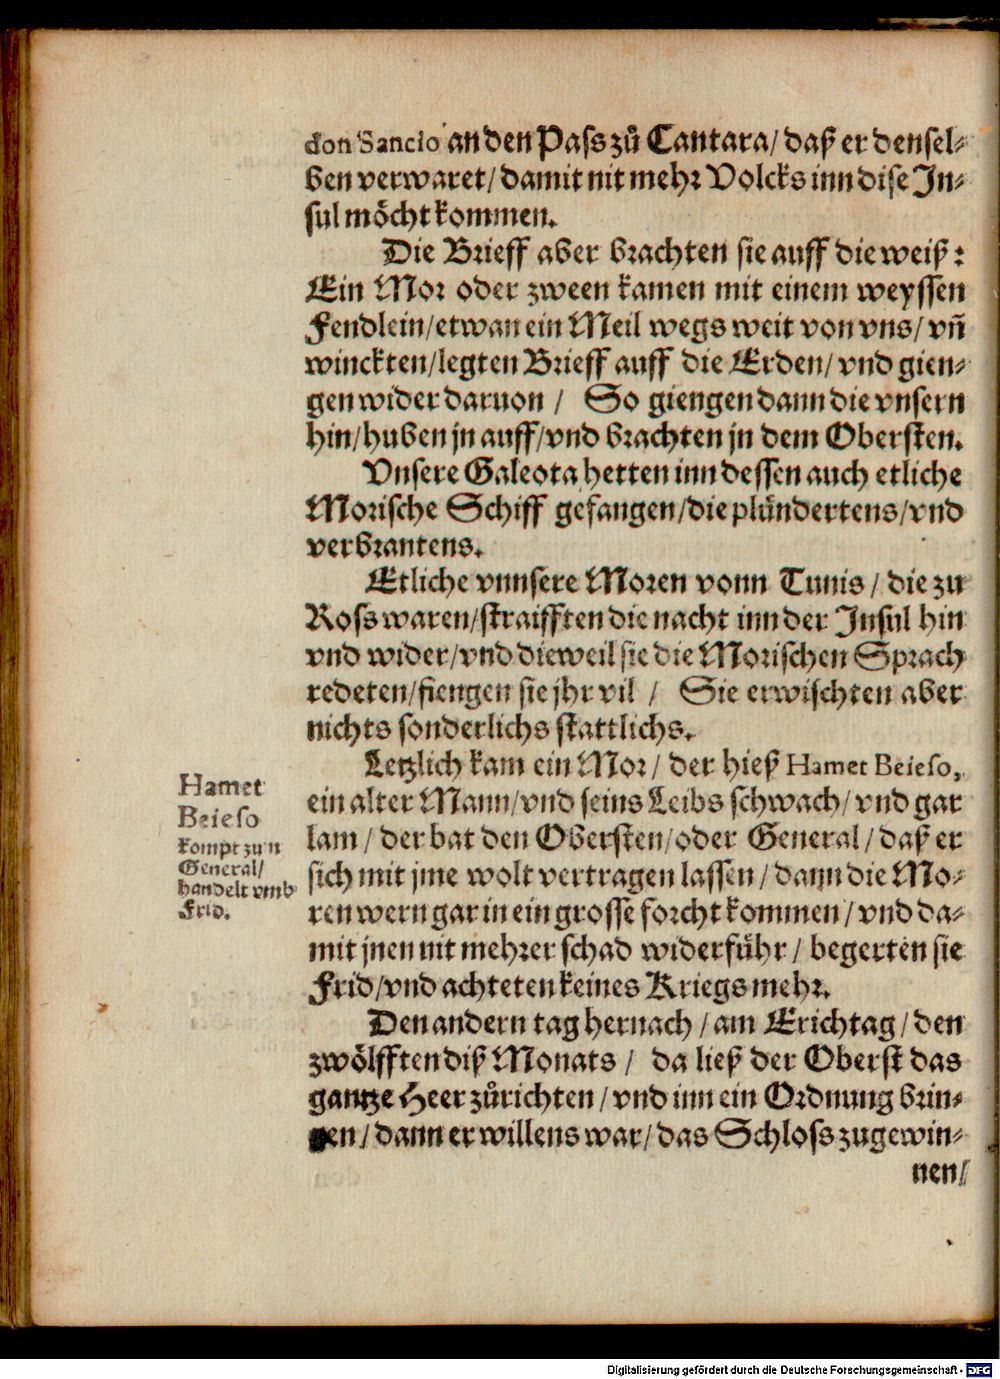 don Sancio an den Pass zů Cantara/ daß er densel⸗
ben verwaret/ damit nit mehr Volcks inn dise In⸗
sul möcht kommen.
Die Brieff aber brachten sie auff die weiß:
Ein Mor oder zween kamen mit einem weyssen
Fendlein/etwan ein Meil wegs weit von vns/ vñ
winckten/legten Brieff auff die Erden/ vnd gien⸗
gen wider daruon / So giengen dann die vnsern
hin/huben jn auff/vnd brachten jn dem Obersten.
Vnsere Galeota hetten inn dessen auch etliche
Morische Schiff gefangen/die plündertens/vnd
verbrantens.
Etliche vnnsere Moren vonn Tunis / die zu
Ross waren/straifften die nacht inn der Insul hin
vnd wider/vnd dieweil sie die Morischen Sprach
redeten/fiengen sie jhr vil / Sie erwischten aber
nichts sonderlichs stattlichs.
Letzlich kam ein Mor/ der hieß Hamet Beieso,
ein alter Mann/vnd seins Leibs schwach/ vnd gar
lam / der bat den Obersten/oder General/ daß er
sich mit jme wolt vertragen lassen / dann die Mo⸗
ren wern gar in ein grosse forcht kommen / vnd da⸗
mit jnen nit mehrer schad widerführ / begerten sie
Frid/vnd achteten keines Kriegs mehr.
Den andern tag hernach / am Erichtag/ den
zwölfften diß Monats / da ließ der Oberst das
gantze Heer zůrichten / vnd inn ein Ordnung brin⸗
gen/ dann er willens war/ das Schloss zugewin⸗
nen/
Hamet
Beieso
kompt zu n
General/
handelt vmb
Frid.
Digitalisierung gefördert durch die Deutsche Forschungsgemeinschaft - DFG